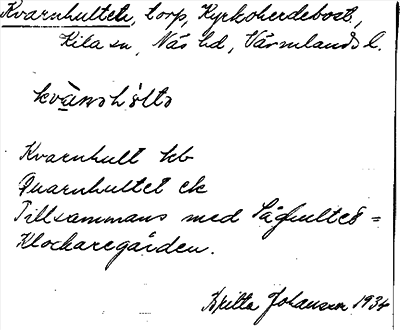 Kvarnhultet, torp, Kyrkoherdebost.,
Kila sn, Näs hd, Värmlands l.
kvànshölts
Kvarnhult kb
Quarnhultet ek
Tillsammans med Såghultet =
Klockaregården.
Britta Johansson 1934